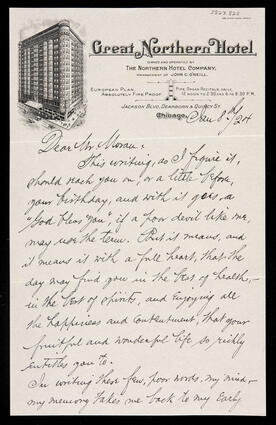 Great Northern Hotel
OWNED AND OPERATED BY
THE NORTHERN HOTEL COMPANY,
MANAGEMENT OF JOHN C. O'NEILL.
EUROPEAN PLAN,
ABSOLUTELY FIRE PROOF.
PIPE ORGAN RECITALS, DAILY,
12 NOON TO 2:30 AND 6 TO 8:30 P.M.
JACKSON BLVD, DEARBORN & QUINCY ST.
Chicago, Jan 8th/24
Dear Mr Moran:
This writing, as I figure it,
should reach you on, or a little before,
your birthday, and with it goes, a
"God bless you", if a poor devil like me,
may use the term. But it means, and
it means it with a full heart, that the
day may find you in the best of health,—
in the best of spirits, and enjoying all
the happiness and contentment, that your
fruitful and wonderful life so richly
entitles you to.
In writing these few, poor words, my mind,—
my memory takes me back to my early